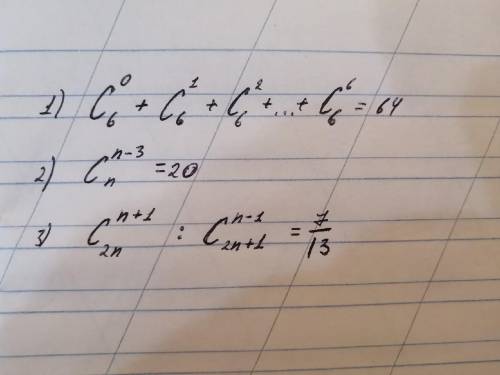 1) C₆⁰ + C₆¹ + C₆² + ... + C₆⁶ = 64
2) Cₙⁿ⁻³ = 20
3) C₂ₙⁿ⁺¹ : C₂ₙ₊₁ⁿ⁻¹ = 7/13